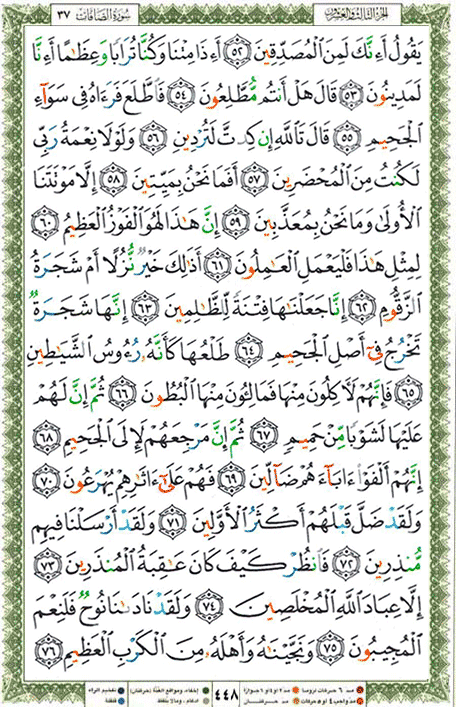 الجزء الثالث والعشرون سورة الصافات ٣٧
يَقُولُ أَءِنَّكَ لَمِنَ ٱلْمُصَدِّقِينَ ٥٢ أَءِذَا مِتْنَا وَكُنَّا تُرَابًا وَعِظَٰمًا أَءِنَّا
لَمَدِينُونَ ٥٣ قَالَ هَلْ أَنتُم مُّطَّلِعُونَ ٥٤ فَٱطَّلَعَ فَرَءَاهُ فِى سَوَآءِ
ٱلْجَحِيمِ ٥٥ قَالَ تَٱللَّهِ إِن كِدتَّ لَتُرْدِينِ ٥٦ وَلَوْلَا نِعْمَةُ رَبِّى
لَكُنتُ مِنَ ٱلْمُحْضَرِينَ ٥٧ أَفَمَا نَحْنُ بِمَيِّتِينَ ٥٨ إِلَّا مَوْتَتَنَا
ٱلْأُولَىٰ وَمَا نَحْنُ بِمُعَذَّبِينَ ٥٩ إِنَّ هَٰذَا لَهُوَ ٱلْفَوْزُ ٱلْعَظِيمُ ٦٠
لِمِثْلِ هَٰذَا فَلْيَعْمَلِ ٱلْعَٰمِلُونَ ٦١ أَذَٰلِكَ خَيْرٌ نُّزُلًا أَمْ شَجَرَةُ
ٱلزَّقُّومِ ٦٢ إِنَّا جَعَلْنَٰهَا فِتْنَةً لِّلظَّٰلِمِينَ ٦٣ إِنَّهَا شَجَرَةٌ
تَخْرُجُ فِىٓ أَصْلِ ٱلْجَحِيمِ ٦٤ طَلْعُهَا كَأَنَّهُۥ رُءُوسُ ٱلشَّيَٰطِينِ
٦٥ فَإِنَّهُمْ لَءَاكِلُونَ مِنْهَا فَمَالِـُٔونَ مِنْهَا ٱلْبُطُونَ ٦٦ ثُمَّ إِنَّ لَهُمْ
عَلَيْهَا لَشَوْبًا مِّنْ حَمِيمٍ ٦٧ ثُمَّ إِنَّ مَرْجِعَهُمْ لَإِلَى ٱلْجَحِيمِ ٦٨
إِنَّهُمْ أَلْفَوْا۟ ءَابَآءَهُمْ ضَآلِّينَ ٦٩ فَهُمْ عَلَىٰٓ ءَاثَٰرِهِمْ يُهْرَعُونَ ٧٠
وَلَقَدْ ضَلَّ قَبْلَهُمْ أَكْثَرُ ٱلْأَوَّلِينَ ٧١ وَلَقَدْ أَرْسَلْنَا فِيهِم
مُّنذِرِينَ ٧٢ فَٱنظُرْ كَيْفَ كَانَ عَٰقِبَةُ ٱلْمُنذَرِينَ ٧٣
إِلَّا عِبَادَ ٱللَّهِ ٱلْمُخْلَصِينَ ٧٤ وَلَقَدْ نَادَىٰنَا نُوحٌ فَلَنِعْمَ
ٱلْمُجِيبُونَ ٧٥ وَنَجَّيْنَٰهُ وَأَهْلَهُۥ مِنَ ٱلْكَرْبِ ٱلْعَظِيمِ ٧٦
مد ٦ حركات لزوما مد ٢ أو ٤ أو ٦ جوازا ٤٤٨ إخفاء، ومواقع الغنة (حركتان) تفخيم الراء
مد واجب ٤ أو ٥ حركات مد حركتان إدغام، وما لا يلفظ قلقلة